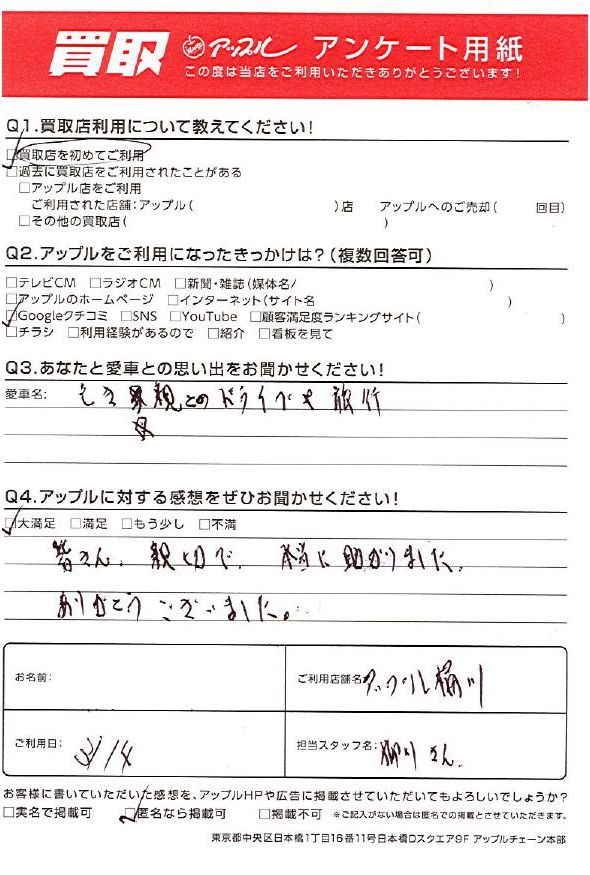 買取 アップル アンケート用紙
この度は当店をご利用いただきありがとうございます!
Q1.買取店利用について教えてください!
□買取店を初めてご利用
□過去に買取店をご利用されたことがある
□アップル店をご利用
ご利用された店舗:アップル( )店 アップルへのご売却( 回目)
□その他の買取店( )
Q2.アップルをご利用になったきっかけは?(複数回答可)
□テレビCM □ラジオCM □新聞・雑誌(媒体名/ )
□アップルのホームページ □インターネット(サイト名 )
□Googleクチコミ □SNS □YouTube □顧客満足度ランキングサイト( )
□チラシ □利用経験があるので □紹介 □看板を見て
Q3.あなたと愛車との思い出をお聞かせください!
愛車名: 親とのドライブや旅行
母
Q4.アップルに対する感想をぜひお聞かせください!
□大満足 □満足 □もう少し □不満
皆さん、親切で、本当に助かりました。
ありがとうございました。
お名前: ご利用店舗名 アップル桶川
ご利用日: 3/14 担当スタッフ名: 柳川さん
お客様に書いていただいた感想を、アップルHPや広告に掲載させていただいてもよろしいでしょうか?
□実名で掲載可 □匿名なら掲載可 □掲載不可 ※ご記入がない場合は匿名での掲載とさせていただきます。
東京都中央区日本橋1丁目16番11号日本橋Dスクエア9F アップルチェーン本部